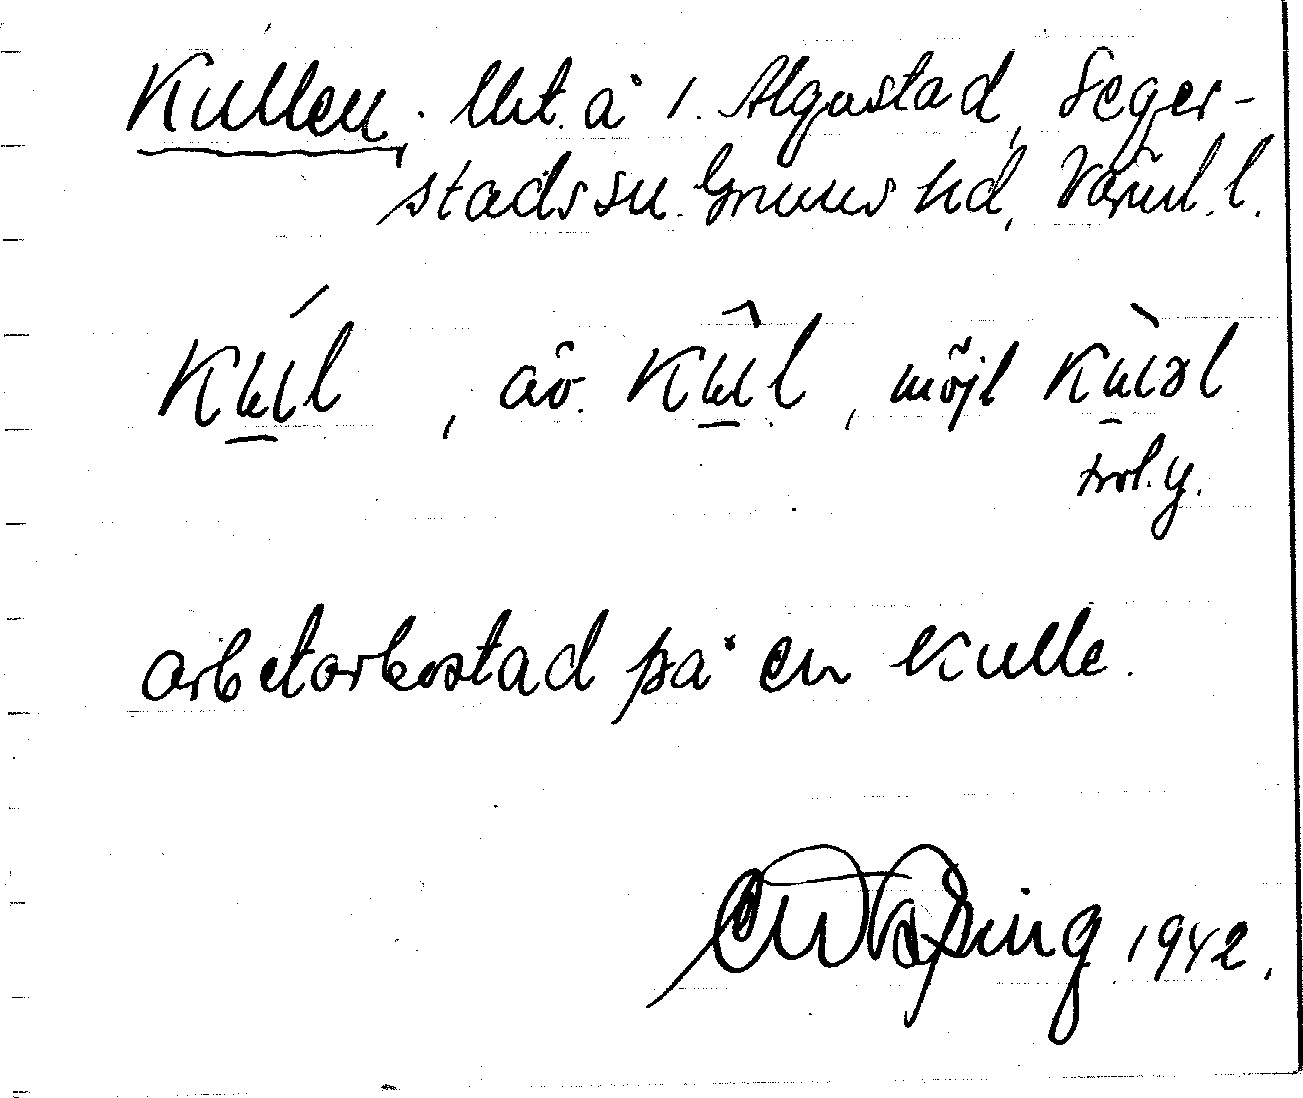 Kullen. lht. å 1. Algustad, Seger-
stads sn. Grums hd, Värml. l.
Kúl, äv. Kûl, möjl Kùəl
trol. y.
arbetarbostad på en kulle.
1942.